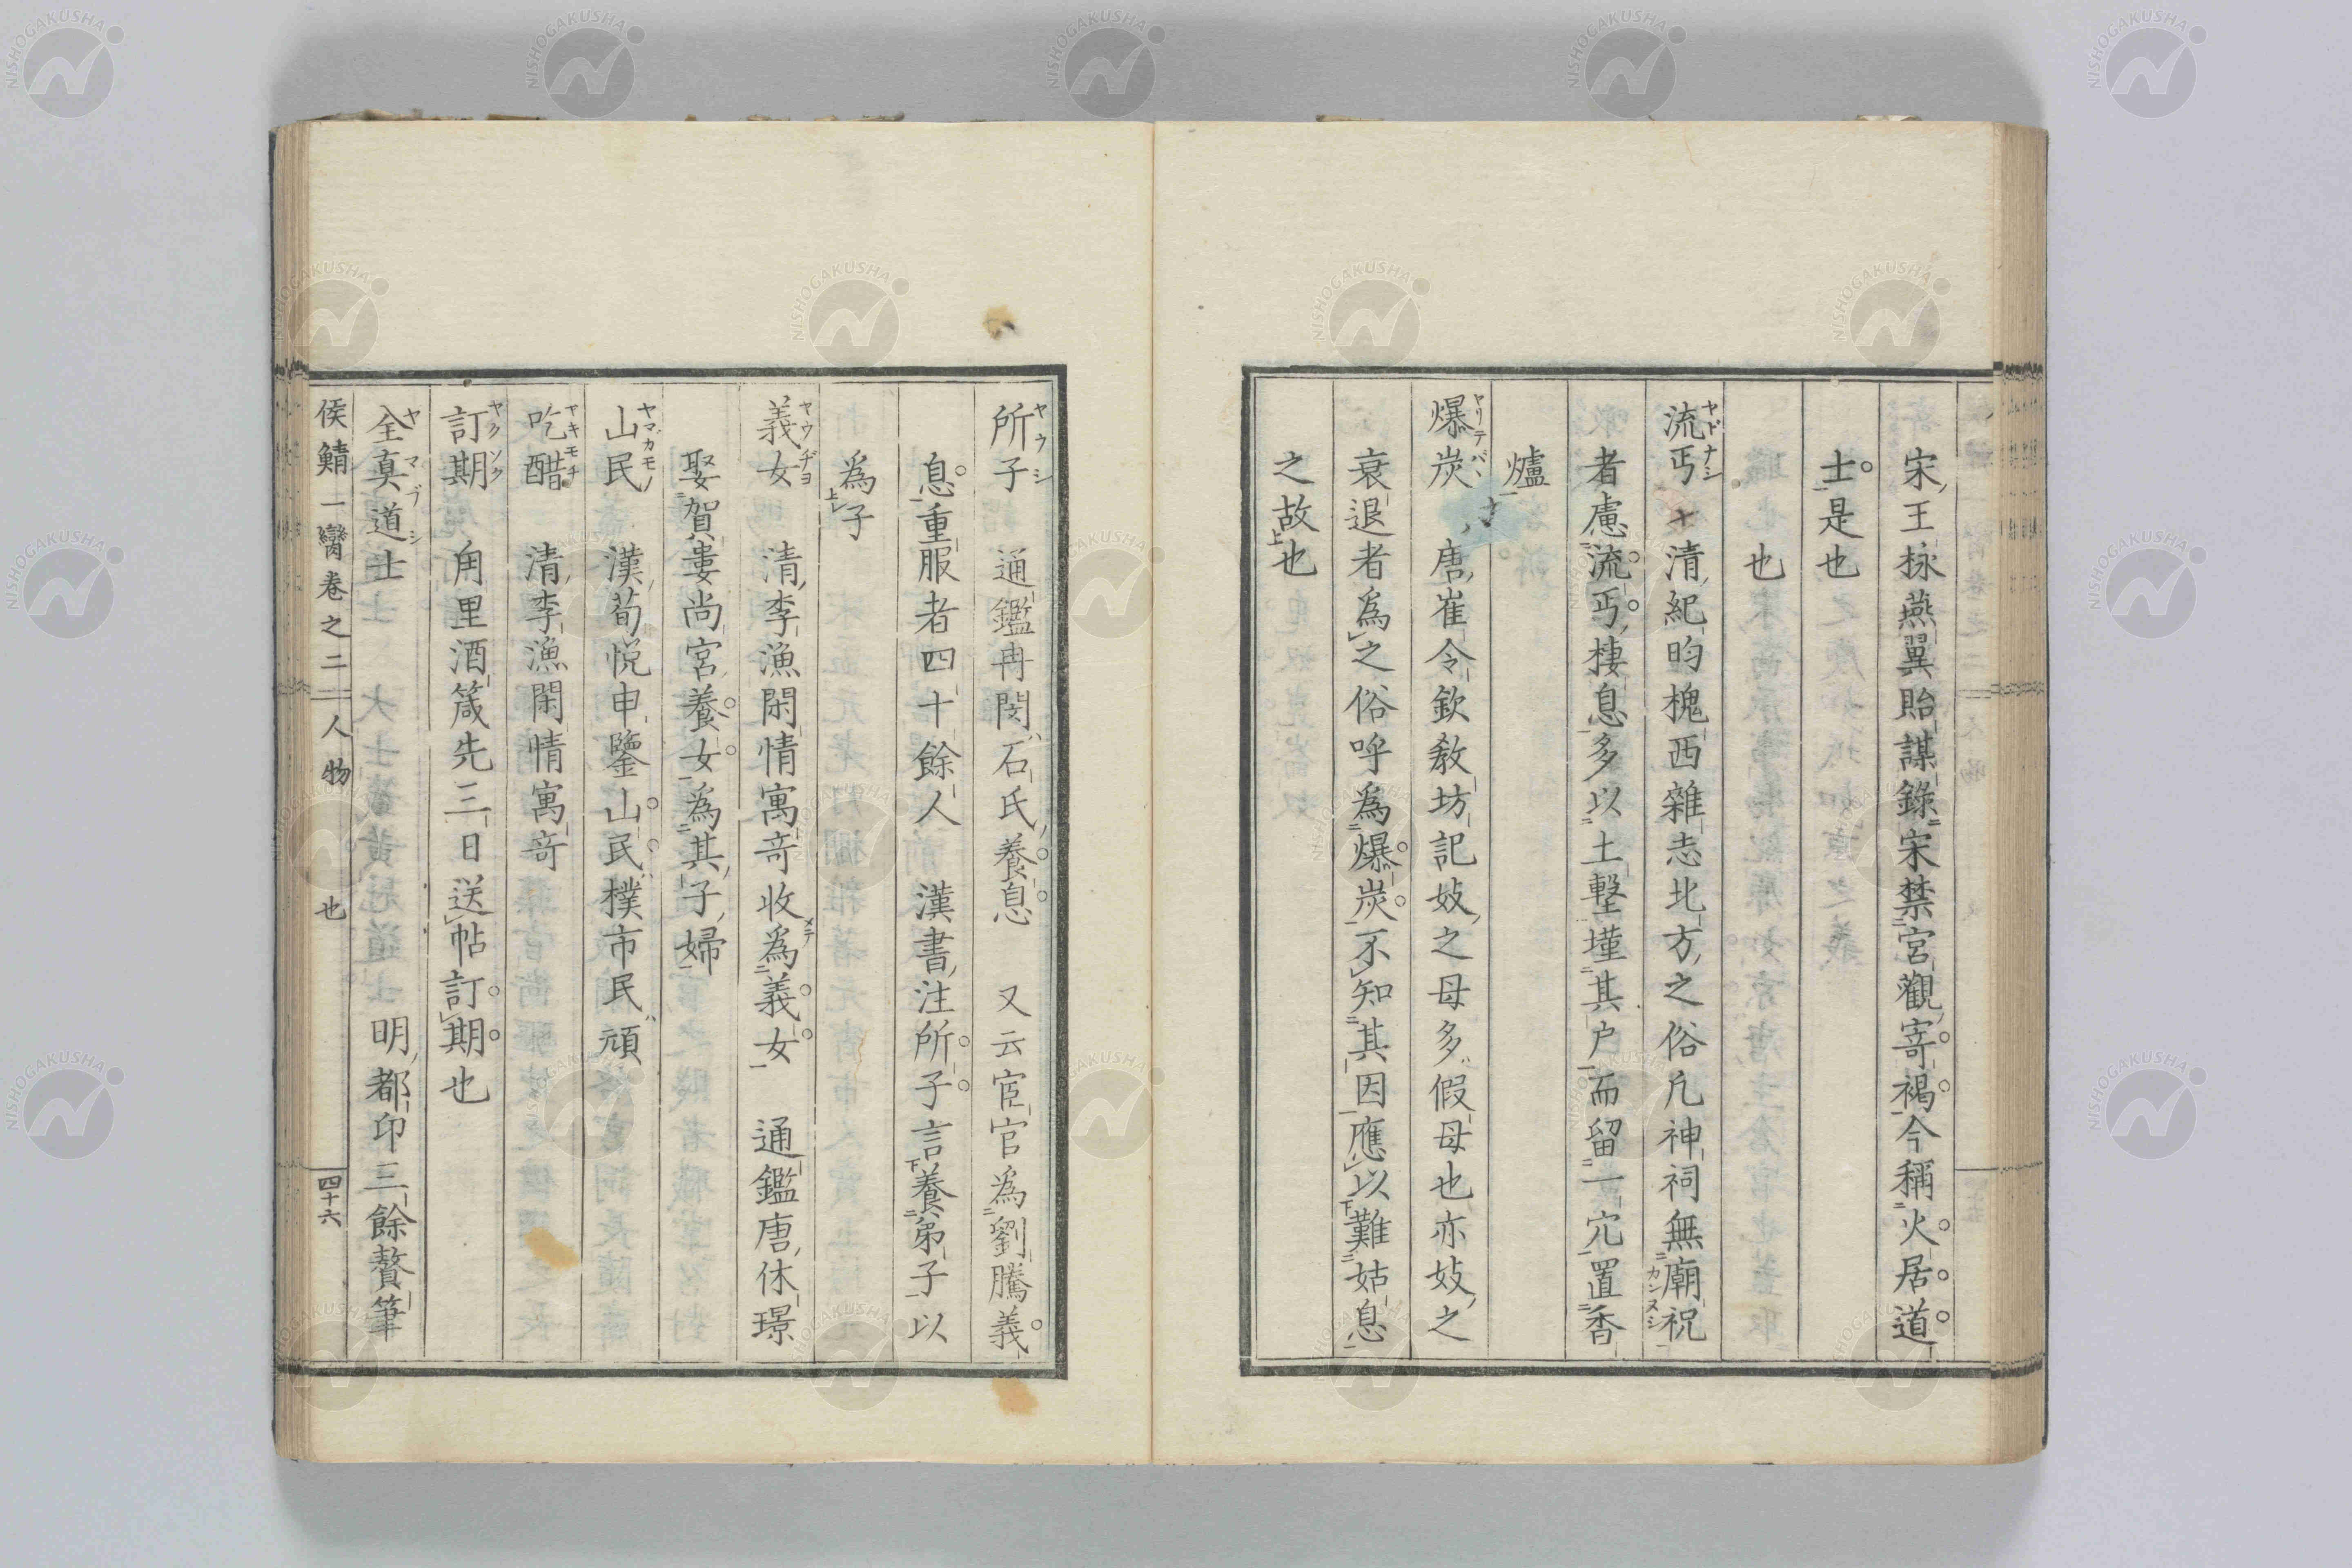 宋王栐燕翼貽謀錄宋禁宮觀寄褐今稱火居道
士是也
也
流丐 清紀昀槐西雜志北方之俗凡神祠無廟祝
ヤドナシ
カンヌシ
者慮流丐棲息多以土墼墐其戸而留一穴置香
爐
爆炭 唐崔令欽敎坊記妓之母多假母也亦妓之
ヤリテバヾ
衰退者爲之俗呼爲爆炭不知其因應以難姑息
之故也
所子 通鑑冉閔石氏養息 又云宦官爲劉騰義
ヤウシ
息重服者四十餘人 漢書注所子言養弟子以
爲子
義女 清李漁閑情寓奇收爲義女 通鑑唐休璟
ヤウヂヨ
メテ
娶賀婁尚宮養女爲其子婦
山民 漢荀悅申鑒山民樸市民頑
ヤマガモノ
吃醋 清李漁閑情寓奇
ヤキモチ
訂期 甪里酒箴先三日送帖訂期也
ヤクソク
全真道士 明都印三餘贅筆
ヤマブシ
侯鯖一臠卷之二 人物 也 四十六
NISHOGAKUSHA